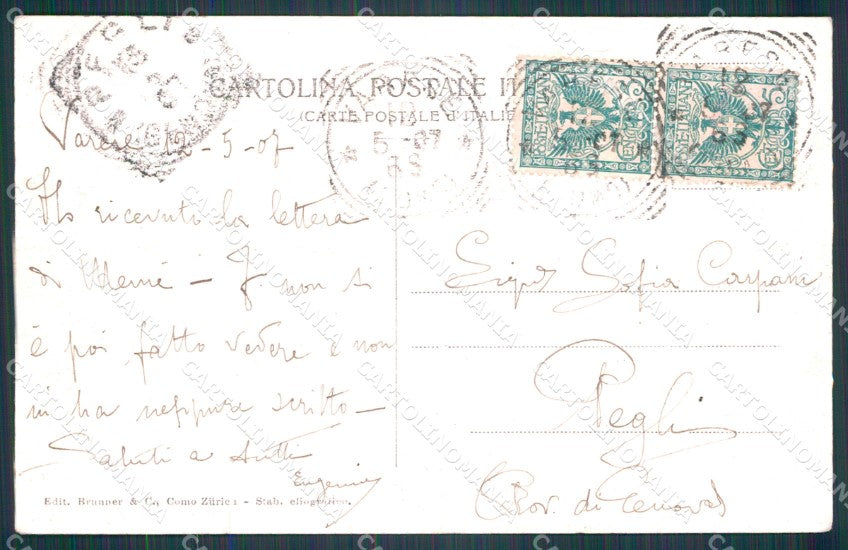 CARTOLINA POSTALE IT
(CARTE POSTALE d'ITALIE
Varese 12-5-07
Ho ricevuto la lettera
di - F. non si
è poi fatto vedere e non
mi ha neppure scritto -
Saluti a tutti
Eugenio
Edit. Brunner & C., Como Zürich - Stab. eliografico.
5-07
Sig.ra Sofia Carpani
Pegli
(Prov. di Genova)
CARTOLINOMANIA